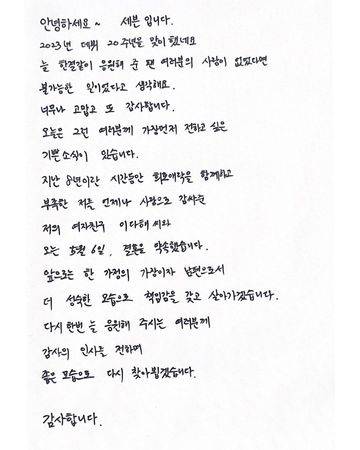 안녕하세요~ 세븐 입니다.
2023년 데뷔 20주년을 맞이 했네요
늘 한결같이 응원해 준 팬 여러분의 사랑이 없었다면
불가능한 일이었다고 생각해요.
너무나 고맙고 또 감사합니다.
오늘은 그런 여러분께 가장먼저 전하고 싶은
기쁜소식이 있습니다.
지난 8년이란 시간동안 희로애락을 함께하고
부족한 저를 언제나 사랑으로 감싸준
저의 여자친구 이다해씨와
오는 5월 6일, 결혼을 약속했습니다.
앞으로는 한 가정의 가장이자 남편으로서
더 성숙한 모습으로 책임감을 갖고 살아가겠습니다.
다시 한번 늘 응원해 주시는 여러분께
감사의 인사를 전하며
좋은 모습으로 다시 찾아뵙겠습니다.
감사합니다.